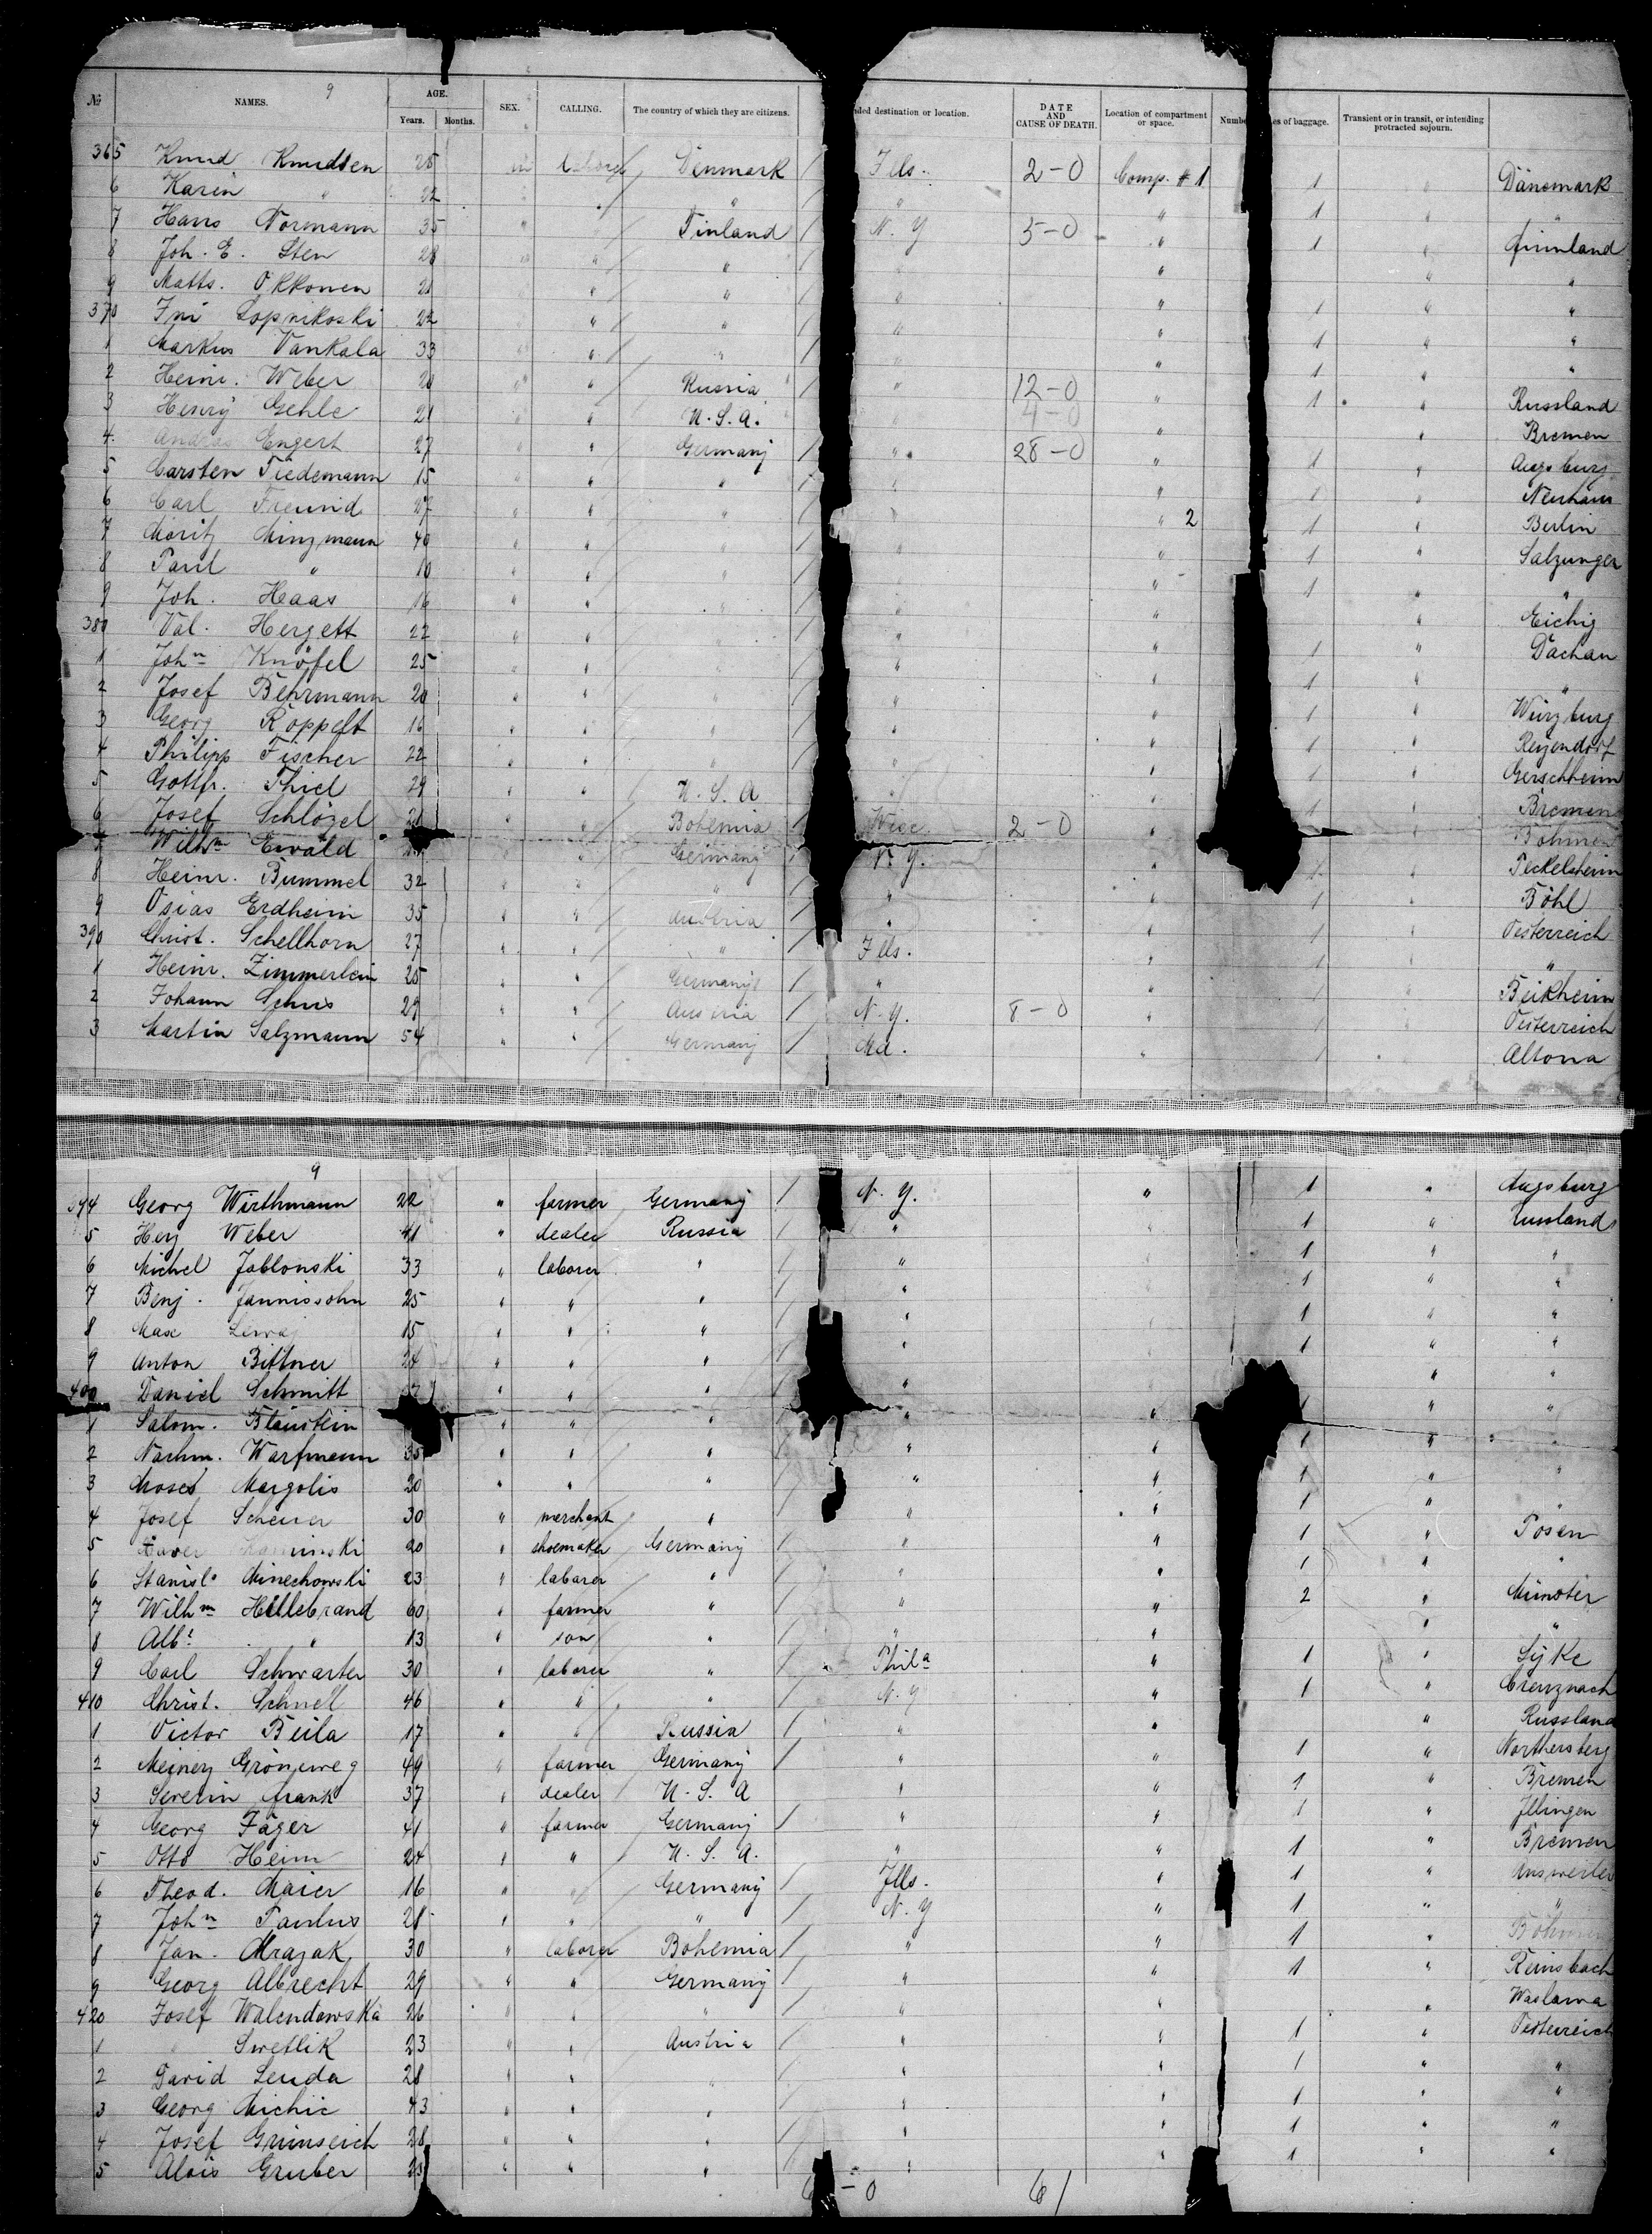 9
№ NAMES. AGE. Years. Months. SEX. CALLING. The country of which they are citizens. ded destination or location. DATE AND CAUSE OF DEATH. Location of compartment or space. Numbe es of baggage. Transient or in transit, or intending protracted sojourn.
365 Knud Knudsen 25 m Denmark / Ills. 2-0 Comp. # 1 1 " Dänemark
6 Karin " 22 " " " 1 " "
7 Hans Normann 35 " Finland / N. Y 5-0 " 1 " Finnland
8 Joh. E. Sten 28 " " " / " " " "
9 Matts. Okkonen 21 " " " / " " 1 " "
370 Ini Lopnikoski 22 " " " / " " 1 " "
1 Markus Vankala 33 " " " / " " 1 " "
2 Heinr. Weber 20 " " Russia / " 12-0 " 1 " Russland
3 Henry Gehle 21 " " U.S.A. " 4-0 " " Bremen
4. Andreas Engert 27 " " Germany / " 28-0 " 1 " Augsburg
5 Carsten Tiedemann 15 " " " / " " 1 " Neuhaus
6 Carl Freund 27 " " " / " " 2 1 " Berlin
7 Moritz Minzmann 40 " " " / " " 1 " Salzungen
8 Paul " 10 " " " / " " 1 " "
9 Joh. Haas 16 " " " / " " " Eichig
380 Val. Hergett 22 " " " / " " 1 " Dachau
1 Johⁿ Knöfel 25 " " " / " " 1 " "
2 Josef Behrmann 20 " " " / " " 1 " Würzburg
3 Georg Röppelt 16 " " " / " " 1 " Reyendorf
4 Philipp Fischer 22 " " " / " " 1 " Gerschheim
5 Gottfr. Thiel 29 " " U.S.A " " 1 " Bremen
6 Josef Schlögel 21 " " Bohemia / Wisc. 2-0 " " Böhmen
7 Wilhᵐ Ewald " " Germany / N. Y. " 1 " Peckelsheim
8 Heinr. Bummel 32 " " " / " " 1 " Böhl
9 Osias Erdheim 35 " " Austria / " " 1 " Oesterreich
390 Christ. Schellhorn 27 " " " / Ills. " " "
1 Heinr. Zimmerlein 25 " " Germany / " " 1 " Beikheim
2 Johann Schus 29 " " Austria / N. Y. 8-0 " 1 " Oesterreich
3 Martin Salzmann 54 " " Germany / Md. " 1 " Altona
9
394 Georg Wirthmann 22 " farmer Germany / N. Y. " 1 " Augsburg
5 Hey Weber 41 " dealer Russia / " " 1 " Russland
6 Michel Jablonski 33 " laborer " / " " 1 " "
7 Benj. Jannissohn 25 " " " / " " 1 " "
8 Max 15 " " " / " " 1 " "
9 Anton Bittner 24 " " " / " " 1 " "
400 Daniel Schmitt " " " / " " "
1 Salom. Blaustein " " " / " " 1 " "
2 Nachm. Warfmann 35 " " " / " " 1 " "
3 Moses Margolis 20 " " " / " " 1 " "
4 Josef Scheuer 30 " merchant " / " " 1 " "
5 Xaver Kaminski 20 " shoemaker Germany / " " 1 " Posen
6 Stanisl. Minechowski 23 " laborer " / " " 1 " "
7 Wilhᵐ Hillebrand 60 " farmer " / " " 2 " Münster
8 Albᵗ " 13 " son " / " " " "
9 Carl Schwarter 30 " laborer " / Philᵃ " 1 " Syke
410 Christ. Schnell 46 " " " / N. Y " 1 " Creuznach
1 Victor Beila 17 " " Russia / " " " Russland
2 Meiner Gröneweg 49 " farmer Germany / " " 1 " Northersberg
3 Severin Frank 37 " dealer U.S. A " " 1 " Bremen
4 Georg Jäger 41 " farmer Germany / " " 1 " Illingen
5 Otto Heim 24 " " U.S. A. " " 1 " Bremen
6 Theod. Maier 16 " " Germany / Ills. " 1 " Answeiler
7 Johⁿ Paulus 28 " " " / N. Y " 1 " "
8 Jan. Mrazak 30 " laborer Bohemia / " " 1 " Böhmen
9 Georg Albrecht 29 " " Germany / " " 1 " Reinsbach
420 Josef Walendowska 26 " " " / " " " Waslawa
1 " Swetlik 23 " " Austria / " " 1 " Oesterreich
2 David Lenda 28 " " " / " " 1 " "
3 Georg Michic 43 " " " / " " 1 " "
4 Josef Grünseich 28 " " " / " " 1 " "
5 Alois Gruber 23 " " " / " " 1 " "
6 - 0 61